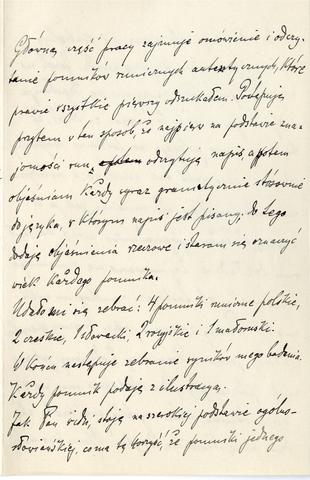 Główną część pracy zajmuje omówienie i odczy-
tanie pomników runicznych autentycznych, które
prawie wszystkie pierwszy odszukałem. Postępuję
przytem w ten sposób, że najpierw na podstawie zna-
jomości run, odczytuję napis, a potem
objaśniam każdy wyraz gramatycznie stosownie
do języka, w którym napis jest pisany, do tego
dodaję objaśnienia rzeczowe i staram się oznaczyć
wiek każdego pomnika.
Udało mi się zebrać: 4 pomniki runiczne polskie,
2 czeskie, 1 słowacki, 2 rosyjskie i 1 małoruski.
W końcu następuje zebranie wyników mego badania.
Każdy pomnik podaję z ilustracyą.
Jak Pan widzi, stoję na szerokiej podstawie ogólno-
słowiańskiej, co ma tę korzyść, że pomniki jednego